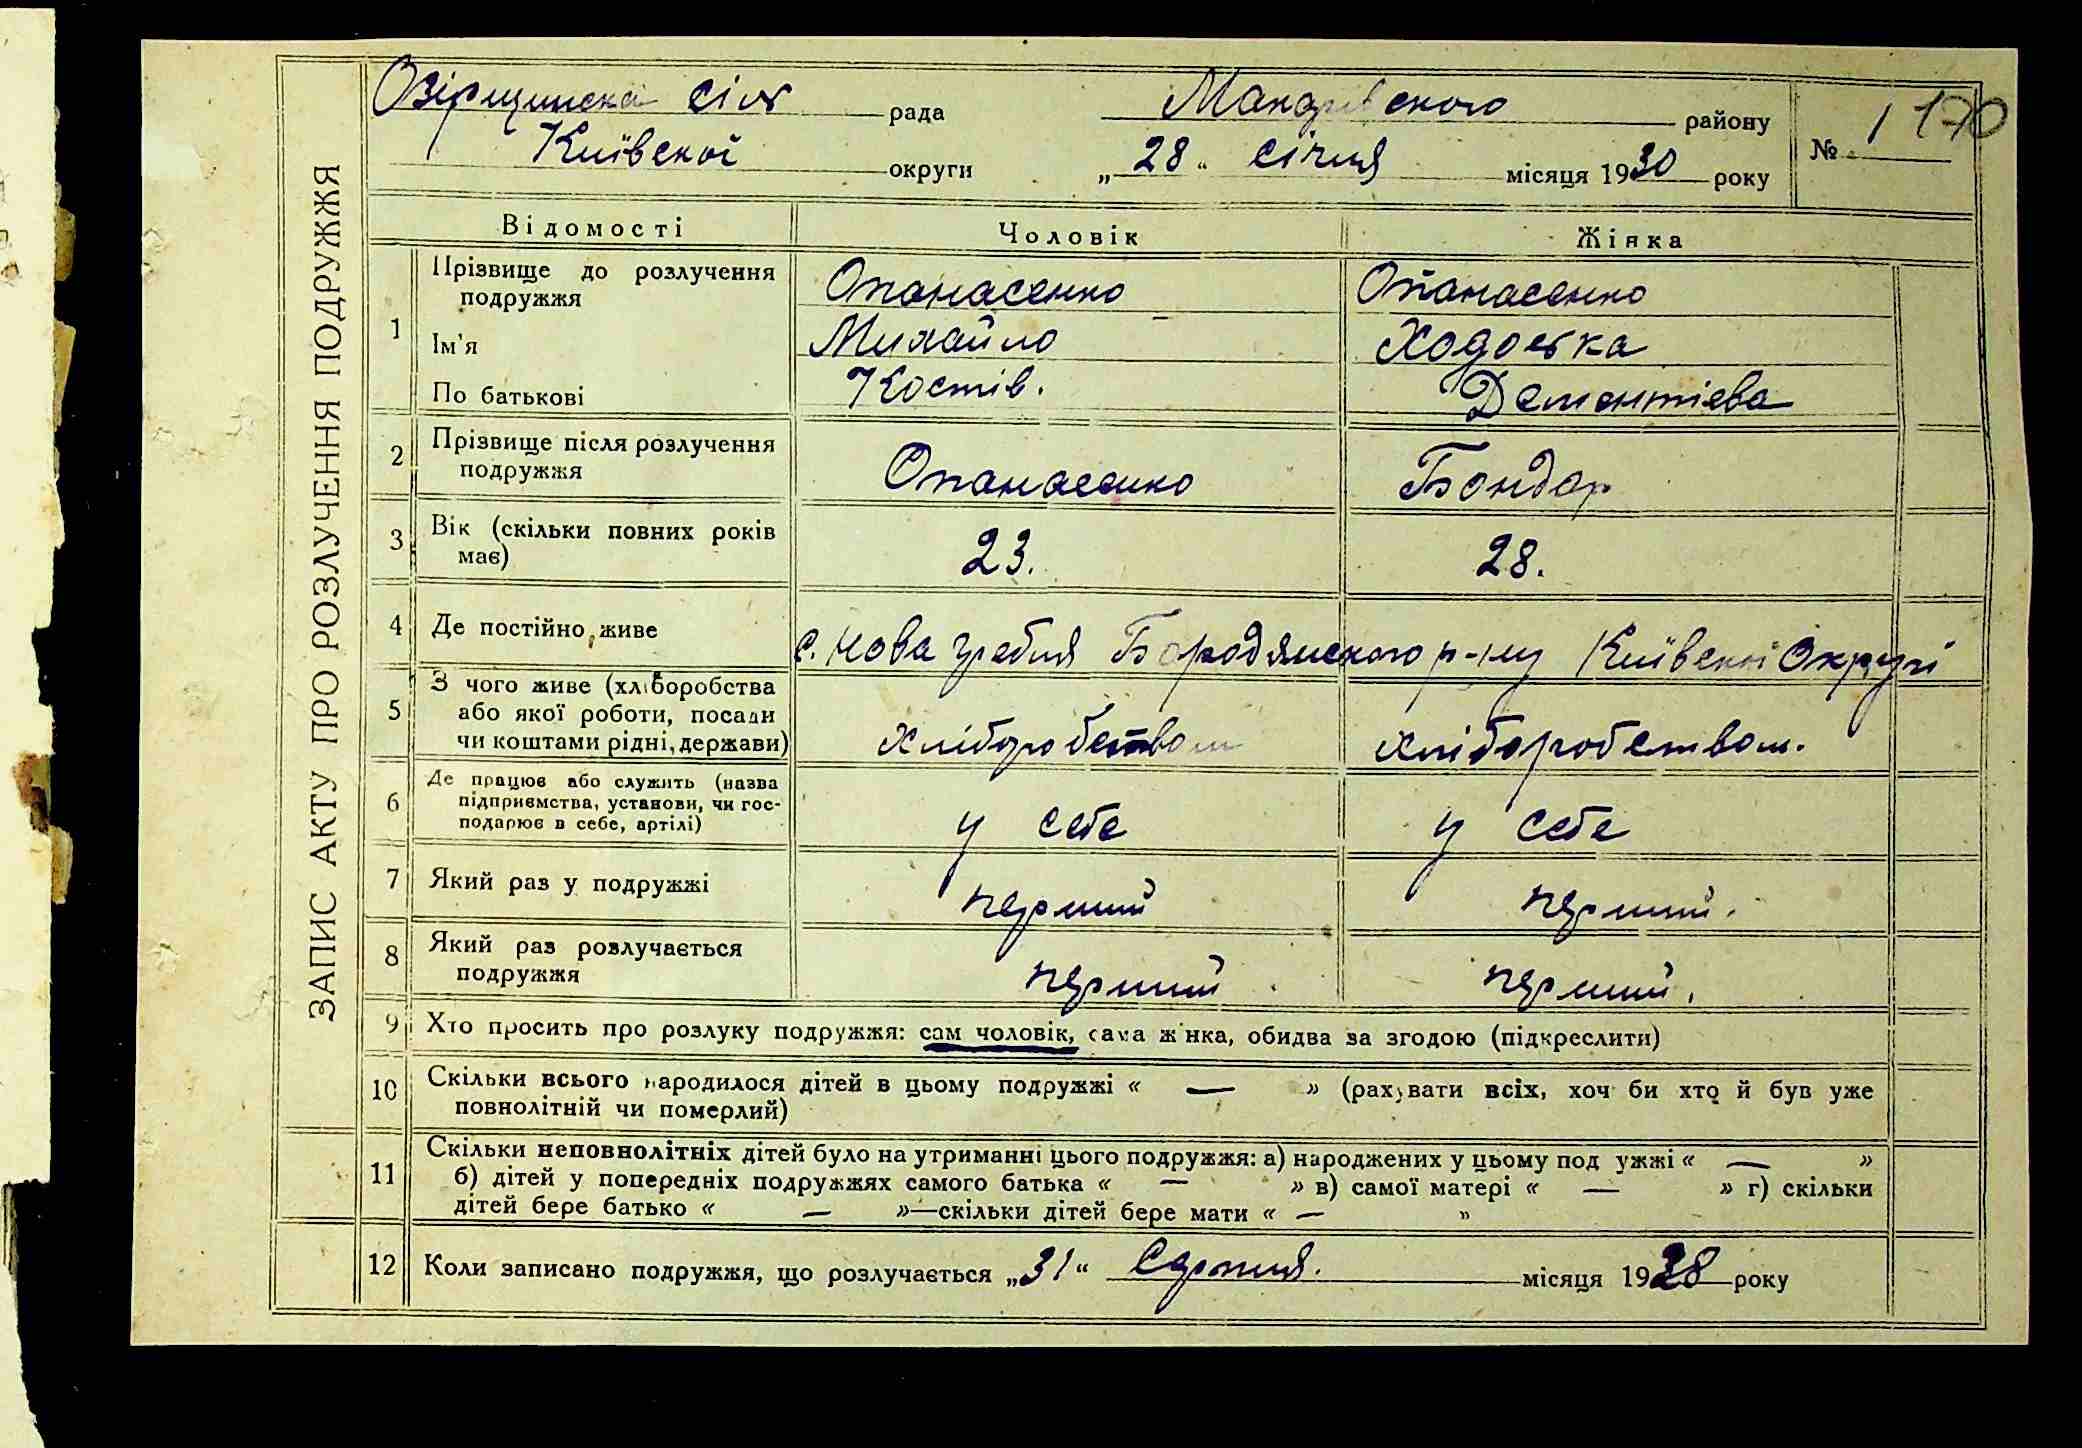 ЗАПИС АКТУ ПРО РОЗЛУЧЕННЯ ПОДРУЖЖЯ
Озірщинска сіл рада Макарівского району
№ 1 170
Київскої округи „28“ січня місяця 1930 року
Відомості Чоловік Жінка
1 Прізвище до розлучення подружжя Опанасенко Опанасенко
Ім'я Михайло Ходоська
По батькові Костів. Дементієва
2 Прізвище після розлучення подружжя Опанасенко Бондар
3 Вік (скільки повних років має) 23. 28.
4 Де постійно живе с. Нова гребля Бородянского р-ну Київскої Округи
5 З чого живе (хліборобства або якої роботи, посади чи коштами рідні, держави) хліборобством хліборобством.
6 Де працює або служить (назва підприємства, установи, чи господарює в себе, артілі) у себе у себе
7 Який раз у подружжі перший перший.
8 Який раз розлучається подружжя перший перший.
9 Хто просить про розлуку подружжя: сам чоловік, сама жінка, обидва за згодою (підкреслити)
10 Скільки всього народилося дітей в цьому подружжі « — » (рахувати всіх, хоч би хто й був уже
повнолітній чи померлий)
11 Скільки неповнолітніх дітей було на утриманні цього подружжя: а) народжених у цьому подружжі « — »
б) дітей у попередніх подружжях самого батька « — » в) самої матері « — » г) скільки
дітей бере батько « — »—скільки дітей бере мати « — »
12 Коли записано подружжя, що розлучається „31“ Серпня. місяця 1928 року